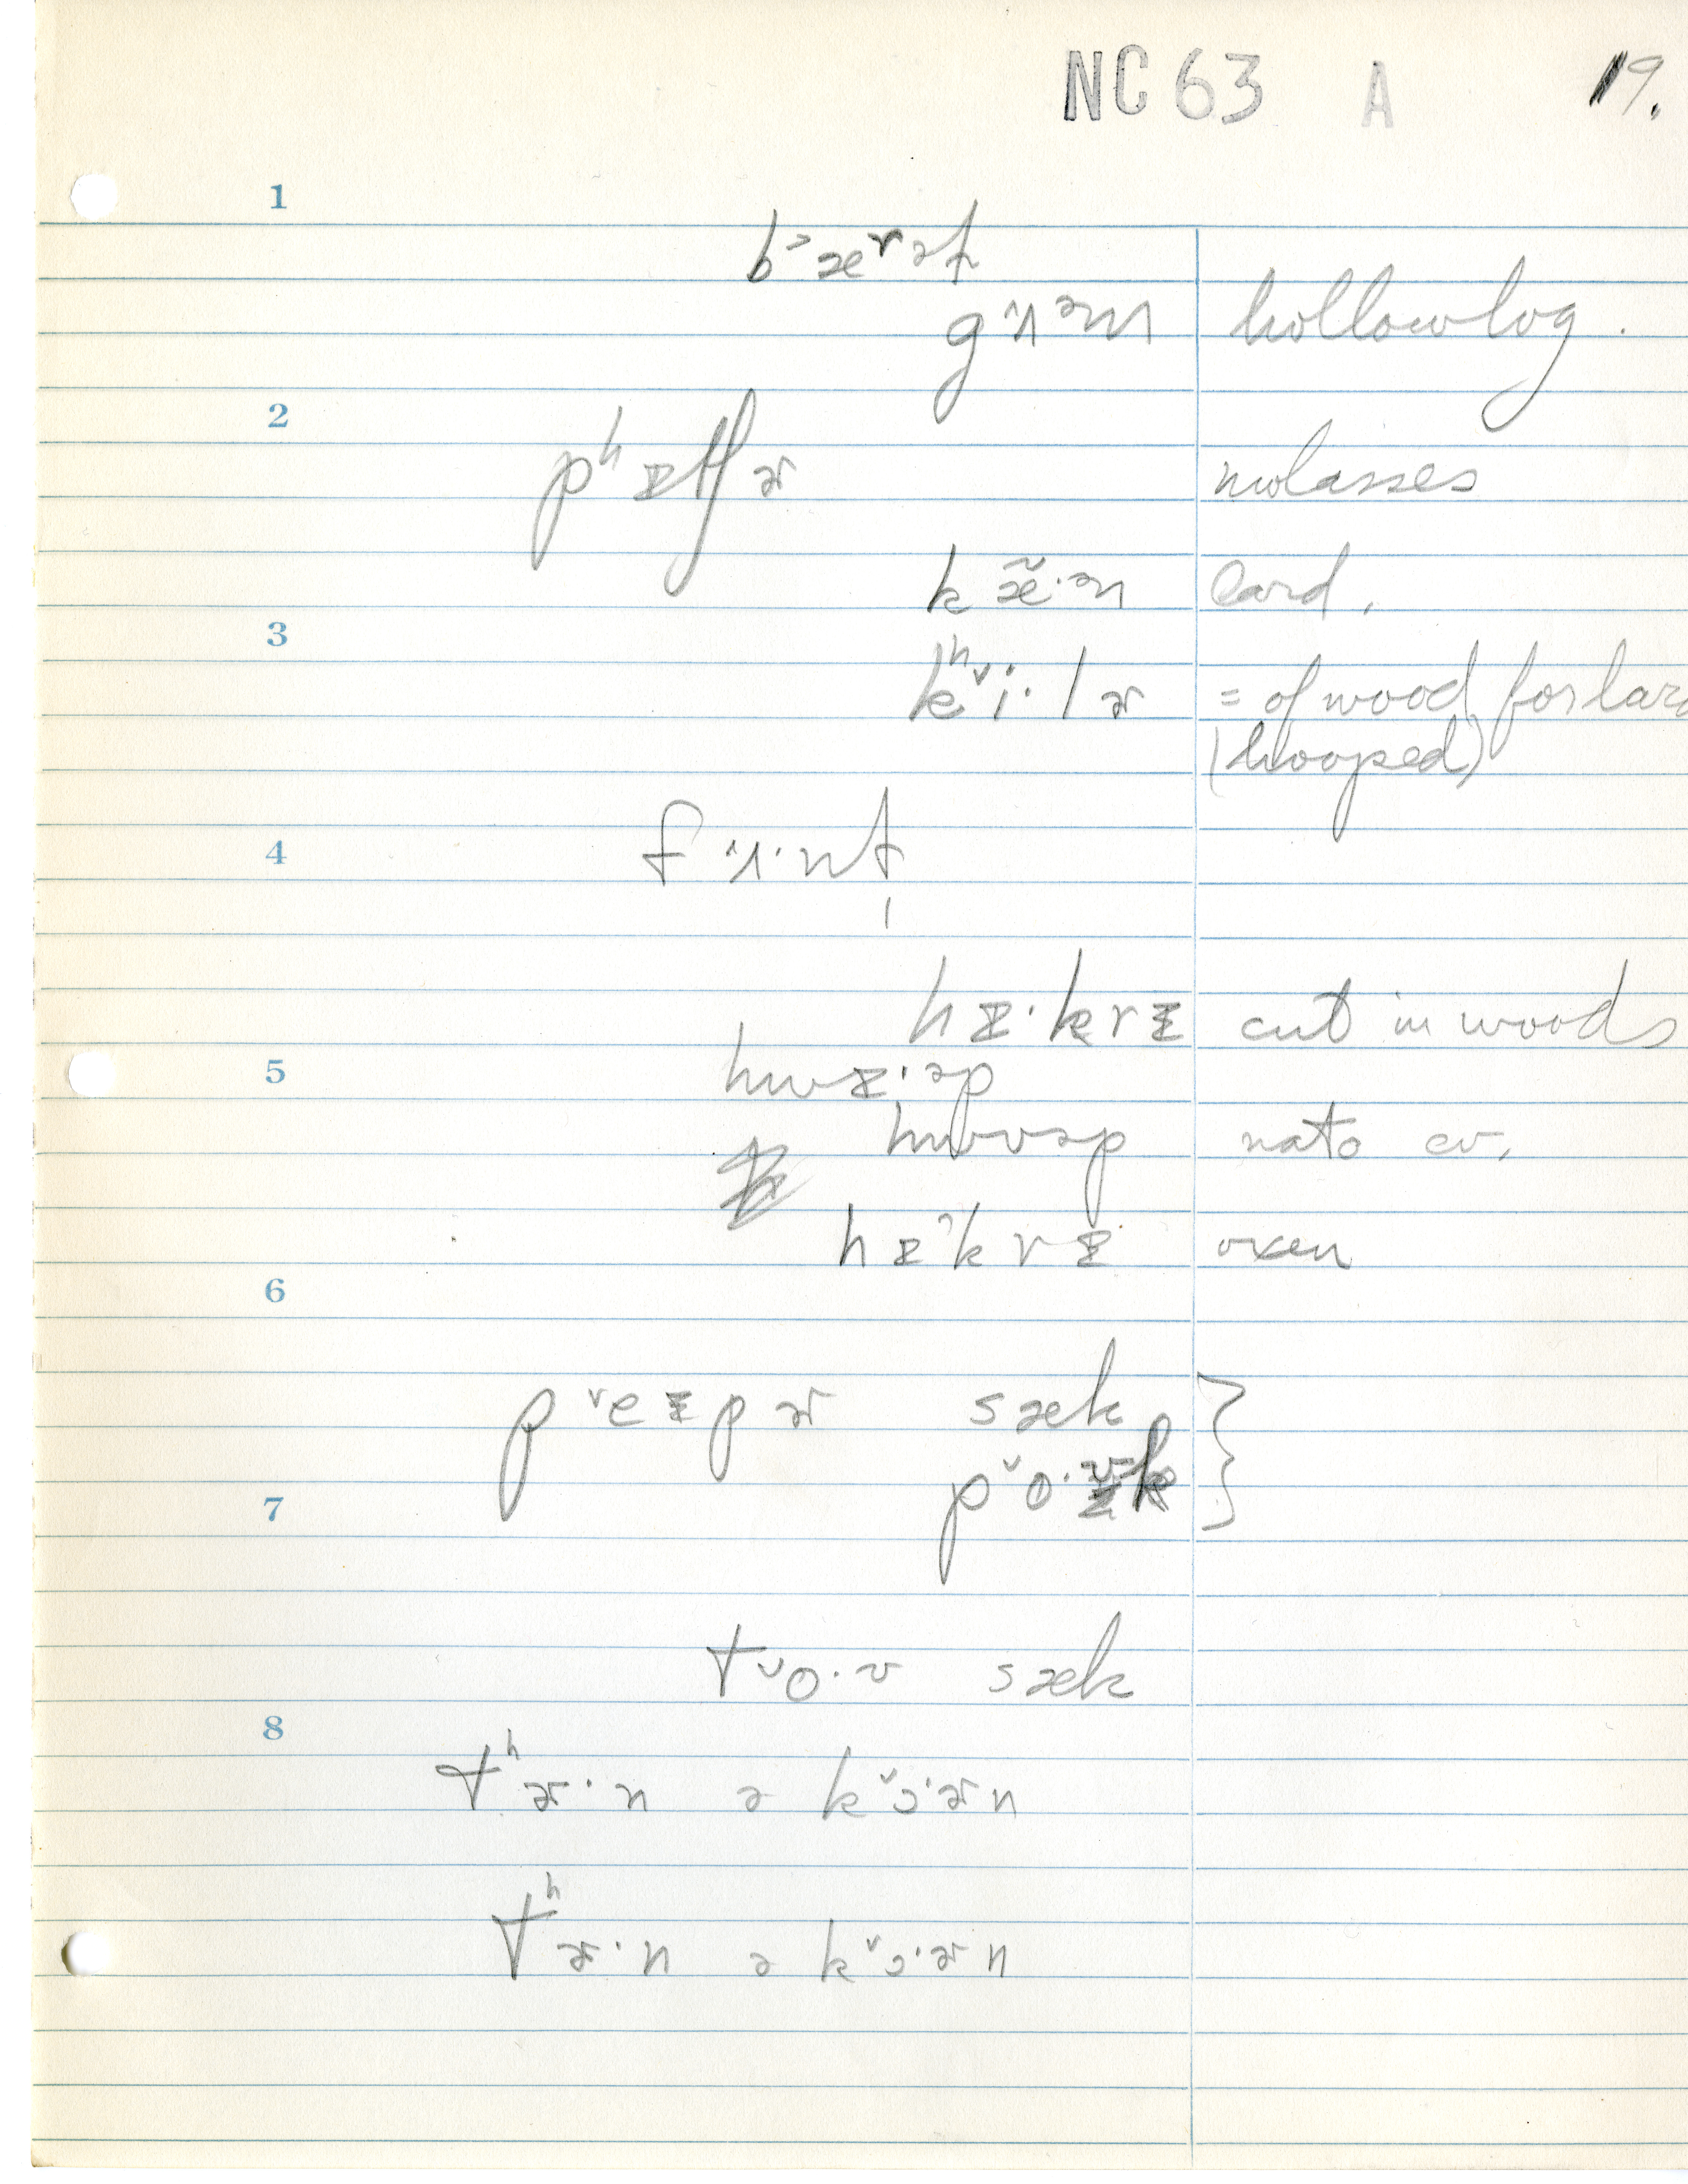 NC 63 A 19.
1
b˃æʳət
gʌəm hollow log .
2
pʰɪtʃɚ molasses
kæ̃·ən lard.
3
kʰ˅i·lɚ = of wood for lard
(hooped)
4
f·ʌ·nt
hɪ·krɪ cut in woods
5
hwɪ·əp
hwʊəp nato cv.
hɪ˄krɪ oxen
6
p˅eɪpɚ sæk
p˅o·ʊk
7
t˅o·ʊ sæk
8
tʰɚ·n ə k˅ɔ·ɚn
tʰɚ·n ə k˅ɔ·ɚn